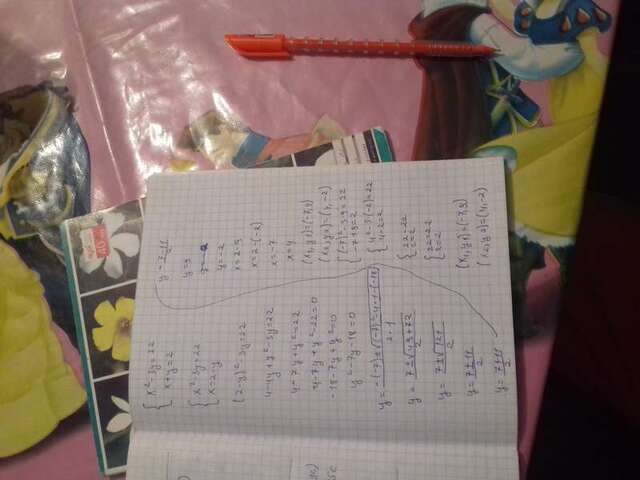 x² - 3y = 22
x + y = 2
x² - 3y = 22
x = 2 - y
(2-y)² - 3y = 22
4 - 4y + y² - 3y = 22
4 - 7y + y² = 22
4 - 7y + y² - 22 = 0
-18 - 7y + y² = 0
y² - 7y - 18 = 0
y = -(-7) ± √(-7)² - 4·1·(-18) / 2·1
y = 7 ± √49 + 72 / 2
y = 7 ± √121 / 2
y = 7 ± 11 / 2
y = 7 + 11 / 2
y = 7 - 11 / 2
y = 9
y = -2
x = 2 - 9
x = 2 - (-2)
x = -7
x = 4
(x₁, y₁) = (-7, 9)
(x₂, y₂) = (4, -2)
(-7)² - 3·9 = 22
-7 + 9 = 2
4² - 3·(-2) = 22
4 - 2 = 2
22 = 22
2 = 2
22 = 22
2 = 2
(x₁, y₁) = (-7, 9)
(x₂, y₂) = (4, -2)
40